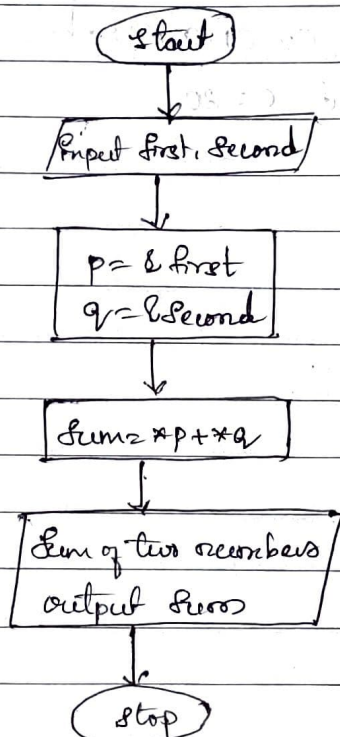 start
input first, second
p= &first
q=&second
sum= *p+*q
Sum of two numbers
output sum
stop